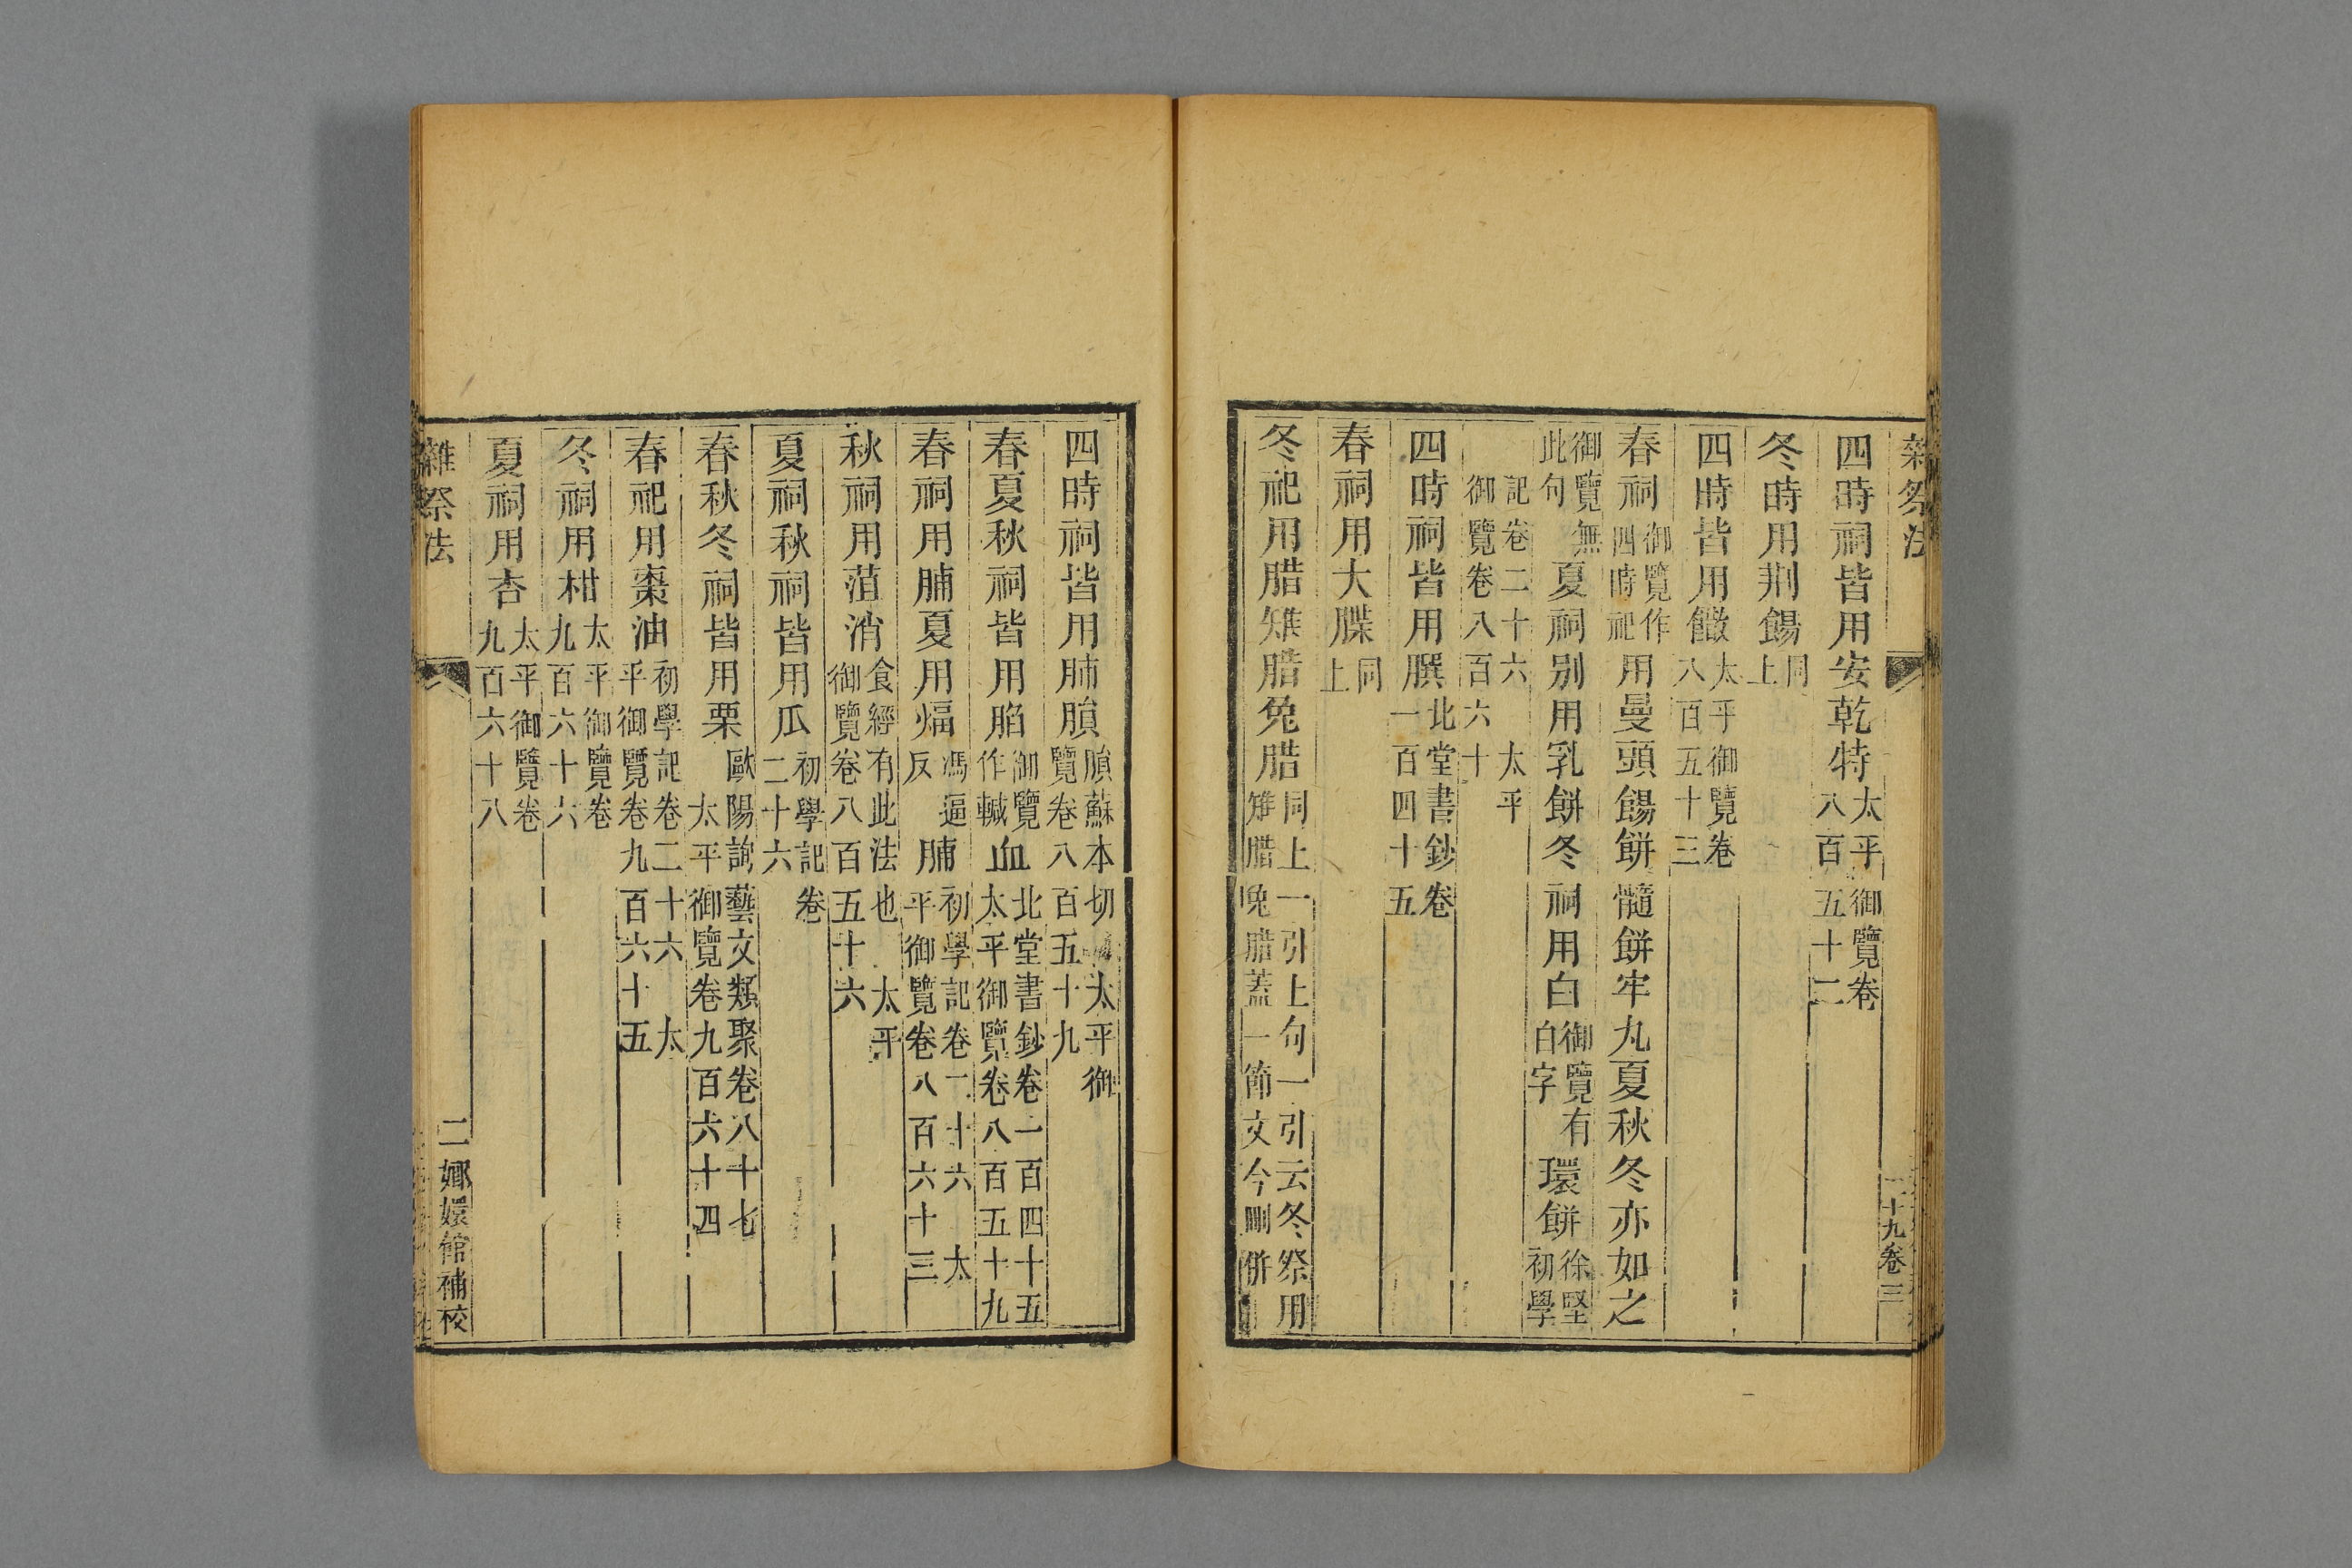 雜祭法
十九卷三
四時祠皆用安乾特太平御覽卷八百五十二
冬時用荆餳同上
四時皆用饊太平御覽卷八百五十三
春祠御覽作四時祀用曼頭餳餅髓餅牢丸夏秋冬亦如之
御覽無此句夏祠别用乳餅冬祠用白御覽有白字環餅徐堅初學
記卷二十六太平御覽卷八百六十
四時祠皆用膶北堂書鈔卷一百四十五
春祠用大䐑同上
冬祀用腊雉腊兔腊同上一引上句一引云冬祭用雉腊兔腊蓋一節文今刪併
四時祠皆用肺䐜䐜蘇本切太平御覽卷八百五十九
春夏秋祠皆用䐄御覽作䘓血北堂書鈔卷一百四十五太平御覽卷八百五十九
春祠用脯夏用煏馮逼反脯初學記卷二十六太平御覽卷八百六十三
秋祠用菹消食經有此法也太平御覽卷八百五十六
夏祠秋祠皆用瓜初學記卷二十六
春秋冬祠皆用栗歐陽詢藝文類聚卷八十七太平御覽卷九百六十四
春祀用棗油初學記卷二十六太平御覽卷九百六十五
冬祠用柑太平御覽卷九百六十六
夏祠用杏太平御覽卷九百六十八
雜祭法
二
嫏嬛館補校